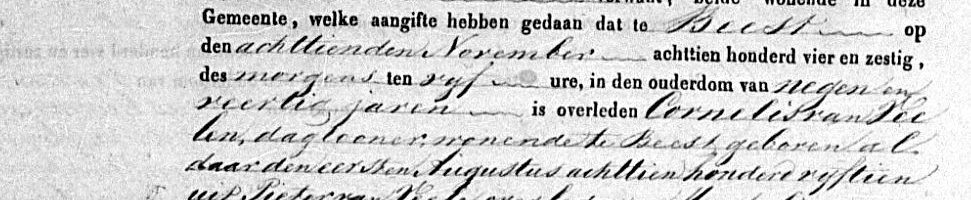 wonende in deze
Gemeente, welke aangifte hebben gedaan dat te Beest op
den achttienden November achttien honderd vier en zestig,
des morgens ten vyf ure, in den ouderdom van negen en
veertig jaren is overleden Cornelis van
daglooner, wonende te Beest, geboren al
daar den eersten Augustus achttien honderd vyftien
uit Pieter van